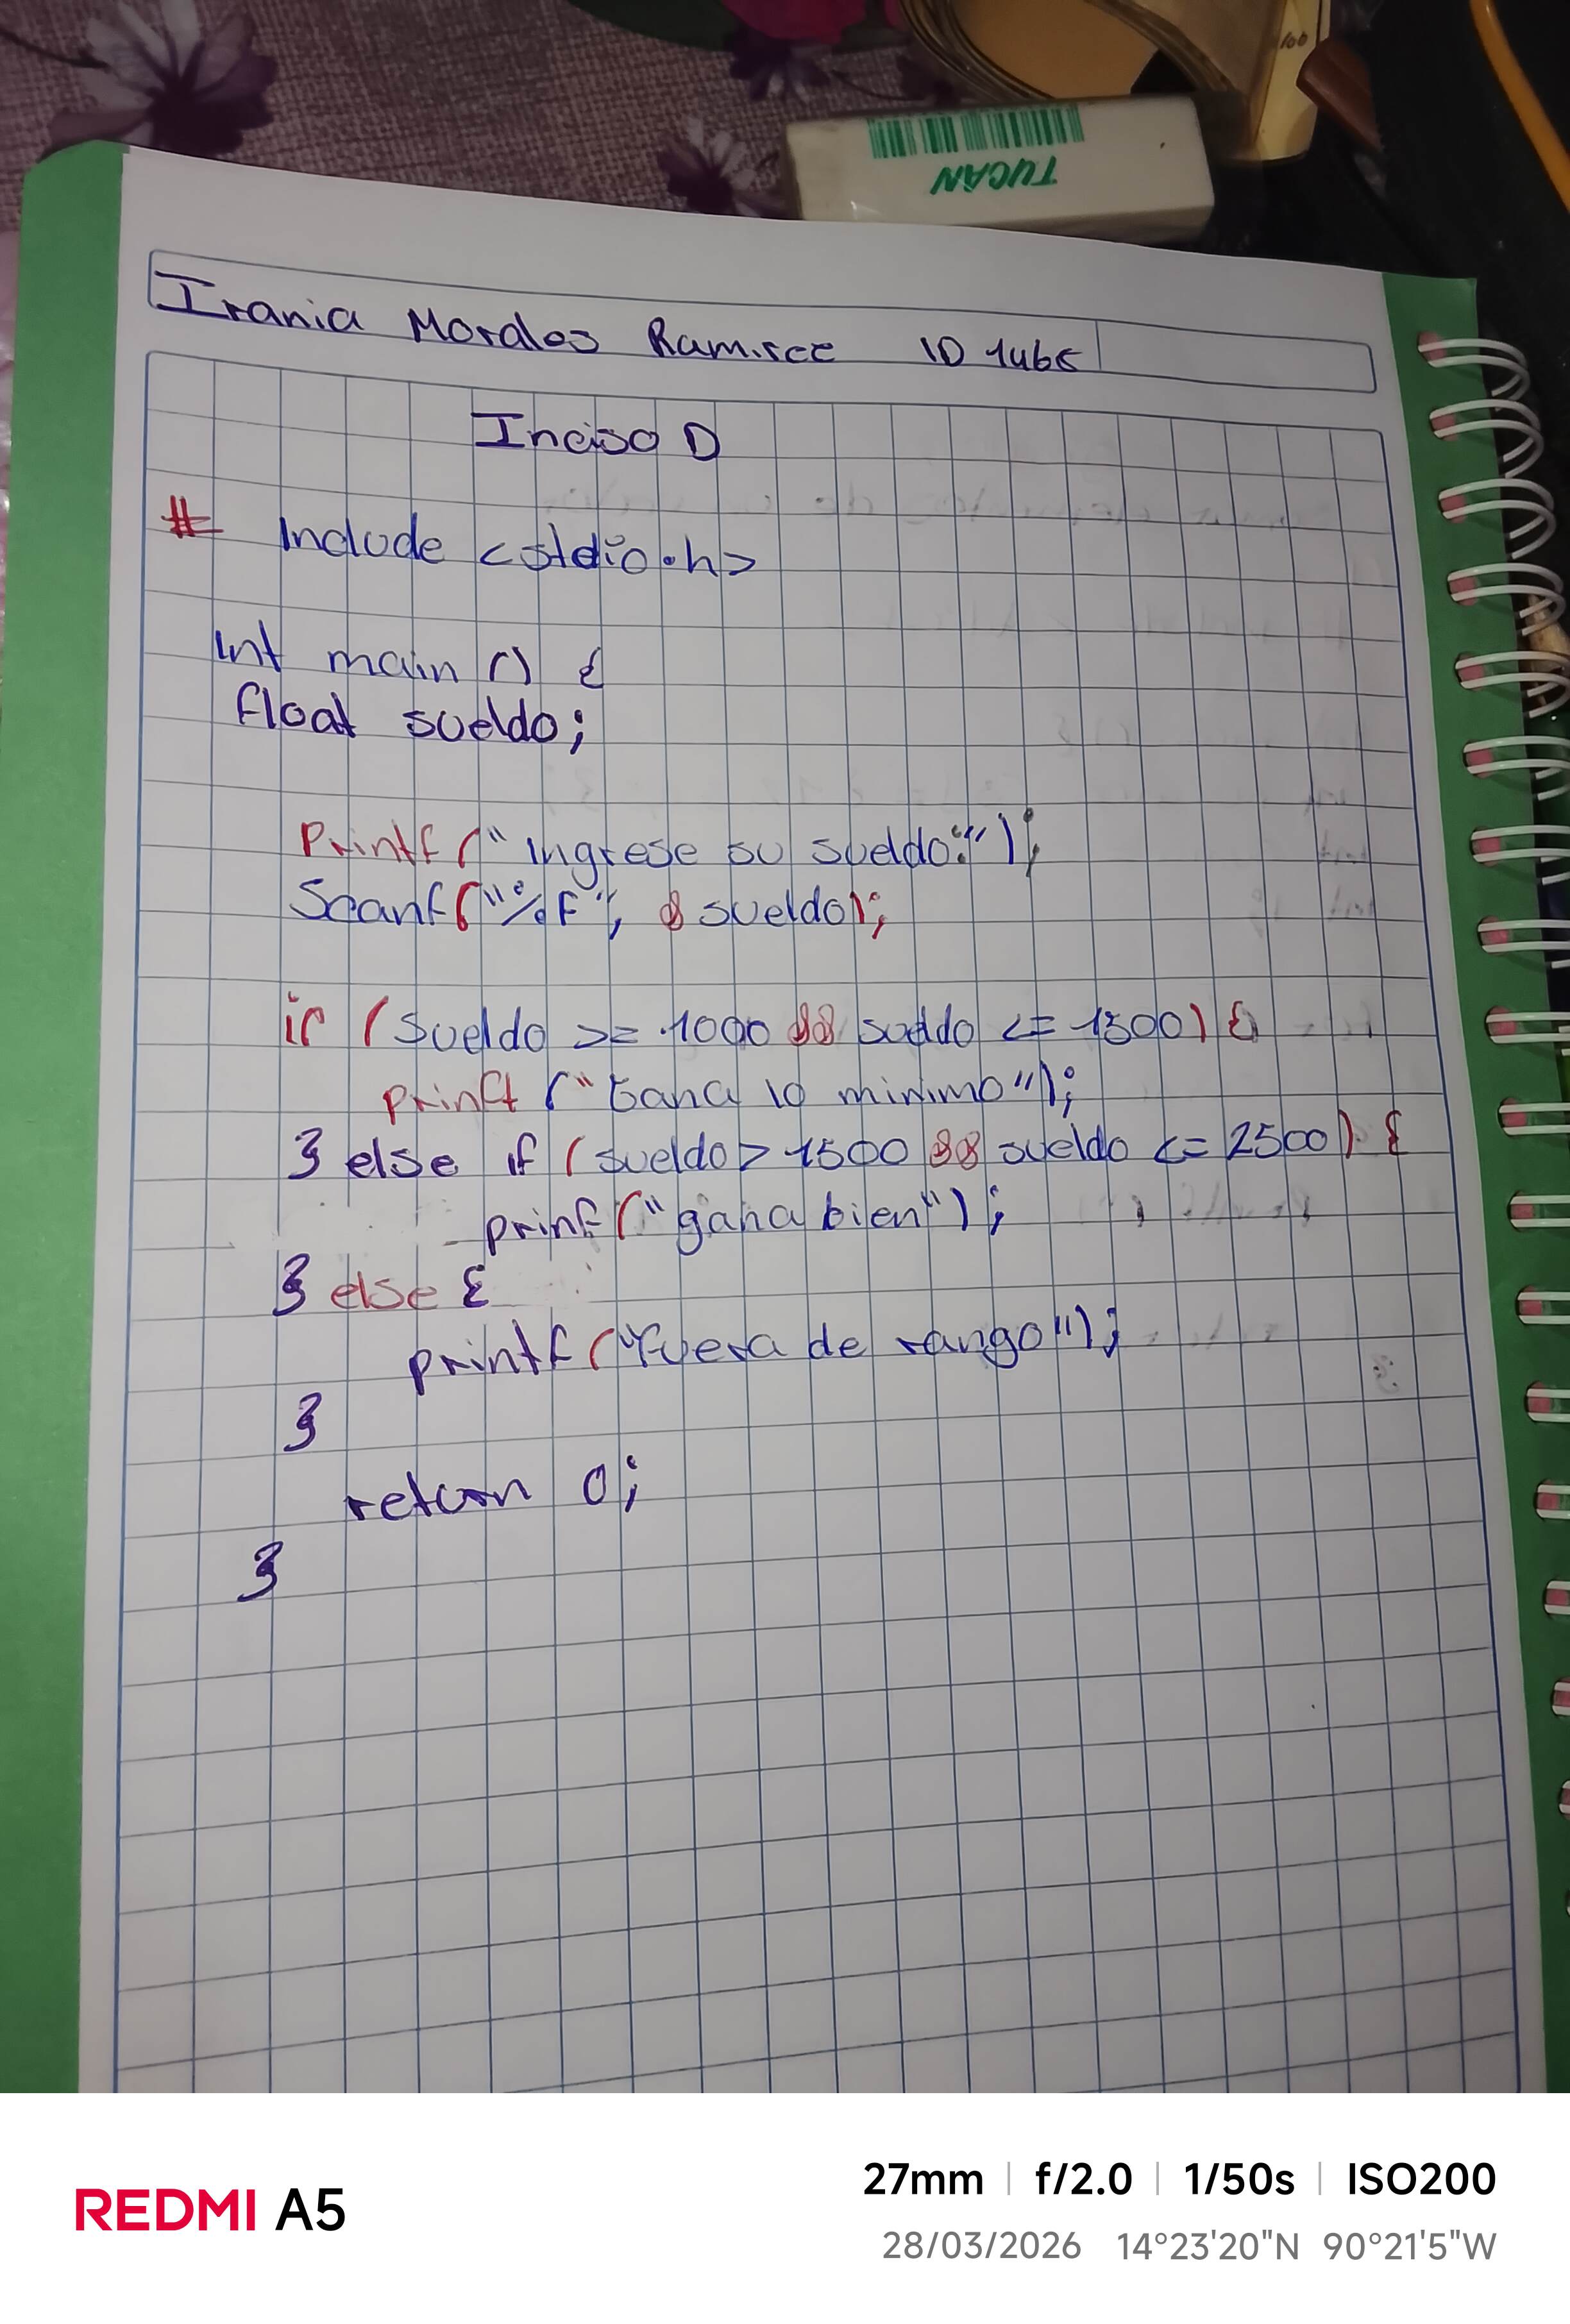 100
TUCAN
Irania Morales Ramirez ID 1465
Inciso D
# Include <stdio.h>
int main () {
float sueldo;
Printf ("ingrese su sueldo:");
Scanf ("%f", & sueldo);
if (sueldo >= 1000 && sueldo <= 1500) {
prinft ("Gana lo minimo");
} else if (sueldo > 1500 && sueldo <= 2500) {
prinf ("gana bien");
} else {
printf ("Fuera de rango");
}
return 0;
}
REDMI A5
27mm | f/2.0 | 1/50s | ISO200
28/03/2026 14°23'20"N 90°21'5"W